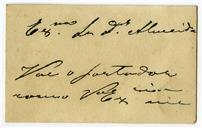 Ex.mo Sr. Dr. Almeida
Vae o portador
como V. Ex.cia